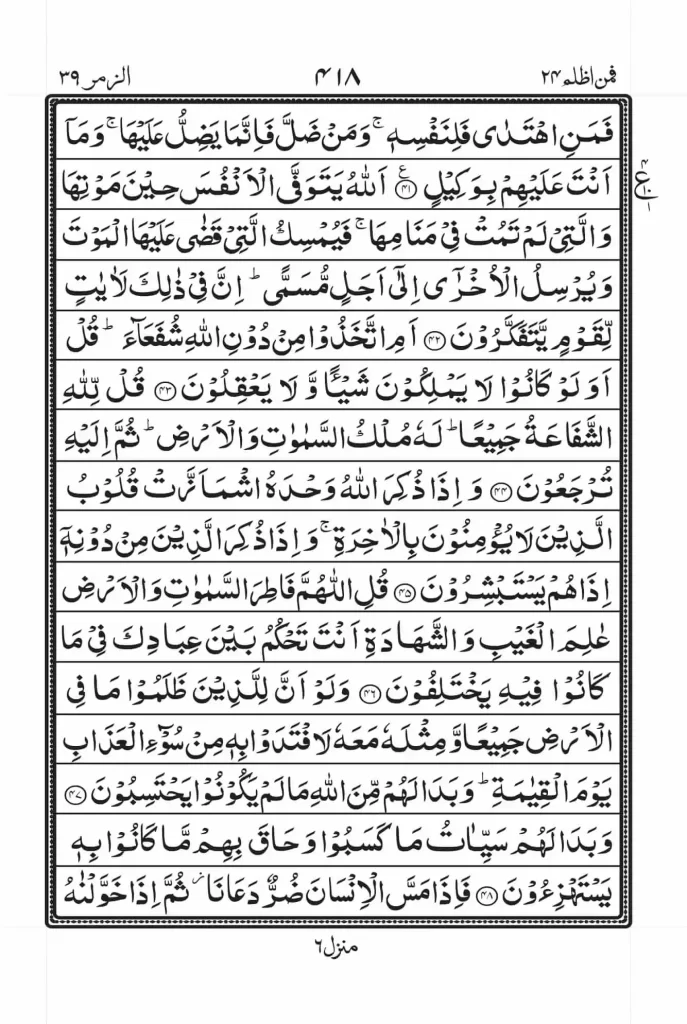 فمن اظلم ۲۴ ۴۱۸ الزمر ۳۹
فَمَنِ اهْتَدٰى فَلِنَفْسِهٖ ۚ وَمَنْ ضَلَّ فَاِنَّمَا يَضِلُّ عَلَيْهَا ۚ وَمَاۤ
اَنْتَ عَلَيْهِمْ بِوَكِيْلٍ ࣖ ﴿۴۱﴾ اَللّٰهُ يَتَوَفَّى الْاَنْفُسَ حِيْنَ مَوْتِهَا
وَالَّتِيْ لَمْ تَمُتْ فِيْ مَنَامِهَا ۚ فَيُمْسِكُ الَّتِيْ قَضٰى عَلَيْهَا الْمَوْتَ
وَيُرْسِلُ الْاُخْرٰٓى اِلٰٓى اَجَلٍ مُّسَمًّى ؕ اِنَّ فِيْ ذٰلِكَ لَاٰيٰتٍ
لِّقَوْمٍ يَّتَفَكَّرُوْنَ ﴿۴۲﴾ اَمِ اتَّخَذُوْا مِنْ دُوْنِ اللّٰهِ شُفَعَآءَ ؕ قُلْ
اَوَلَوْ كَانُوْا لَا يَمْلِكُوْنَ شَيْـًٔا وَّ لَا يَعْقِلُوْنَ ﴿۴۳﴾ قُلْ لِّلّٰهِ
الشَّفَاعَةُ جَمِيْعًا ؕ لَهٗ مُلْكُ السَّمٰوٰتِ وَالْاَرْضِ ؕ ثُمَّ اِلَيْهِ
تُرْجَعُوْنَ ﴿۴۴﴾ وَ اِذَا ذُكِرَ اللّٰهُ وَحْدَهُ اشْمَاَزَّتْ قُلُوْبُ
الَّذِيْنَ لَا يُؤْمِنُوْنَ بِالْاٰخِرَةِ ۚ وَاِذَا ذُكِرَ الَّذِيْنَ مِنْ دُوْنِهٖۤ
اِذَا هُمْ يَسْتَبْشِرُوْنَ ﴿۴۵﴾ قُلِ اللّٰهُمَّ فَاطِرَ السَّمٰوٰتِ وَالْاَرْضِ
عٰلِمَ الْغَيْبِ وَالشَّهَادَةِ اَنْتَ تَحْكُمُ بَيْنَ عِبَادِكَ فِيْ مَا
كَانُوْا فِيْهِ يَخْتَلِفُوْنَ ﴿۴۶﴾ وَلَوْ اَنَّ لِلَّذِيْنَ ظَلَمُوْا مَا فِي
الْاَرْضِ جَمِيْعًا وَّمِثْلَهٗ مَعَهٗ لَافْتَدَوْا بِهٖ مِنْ سُوْٓءِ الْعَذَابِ
يَوْمَ الْقِيٰمَةِ ؕ وَبَدَا لَهُمْ مِّنَ اللّٰهِ مَا لَمْ يَكُوْنُوْا يَحْتَسِبُوْنَ ﴿۴۷﴾
وَبَدَا لَهُمْ سَيِّاٰتُ مَا كَسَبُوْا وَحَاقَ بِهِمْ مَّا كَانُوْا بِهٖ
يَسْتَهْزِءُوْنَ ﴿۴۸﴾ فَاِذَا مَسَّ الْاِنْسَانَ ضُرٌّ دَعَانَا ؗ ثُمَّ اِذَا خَوَّلْنٰهُ
منزل ۶